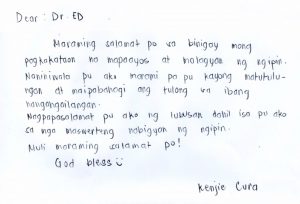 Dear : Dr. ED
Maraming salamat po sa binigay mong
pagkakataon na mapaayos at malagyan ng ngipin.
Naniniwala po ako marami pa po kayong matutulu-
ngan at maipabahagi ang tulong sa ibang
nangangailangan.
Nagpapasalamat pu ako ng lubusan dahil isa pu ako
sa mga maswerteng nabigyan ng ngipin.
Muli maraming salamat po!
God bless
Kenjie Cura